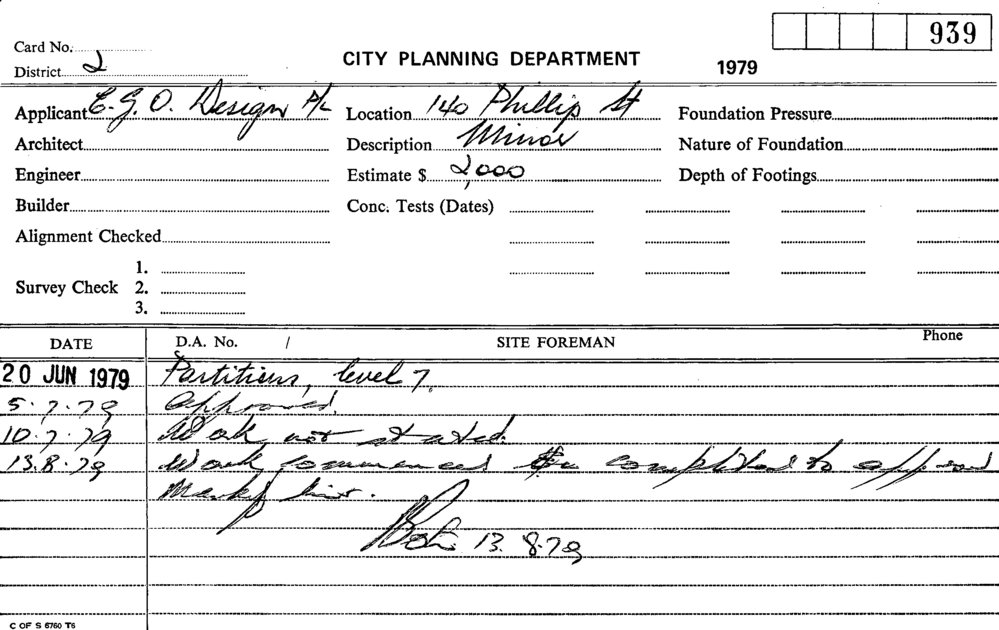 939
Card No.
District 2
CITY PLANNING DEPARTMENT
1979
Applicant E.G.O. Design P/L
Location 140 Phillip St
Foundation Pressure
Architect
Description Minor
Nature of Foundation
Engineer
Estimate $ 2,000
Depth of Footings
Builder
Conc. Tests (Dates)
Alignment Checked
1.
Survey Check 2.
3.
DATE D.A. No. / SITE FOREMAN Phone
20 JUN 1979 Partitions, level 7.
5.7.79 Approved.
10.7.79 Work not started.
13.8.79 Work commenced & completed to approved
13.8.79
C OF S 6760 T6